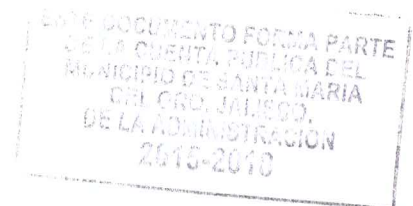 ESTE DOCUMENTO FORMA PARTE
DE LA CUENTA PUBLICA DEL
MUNICIPIO DE SANTA MARIA
DEL ORO, JALISCO,
DE LA ADMINISTRACIÓN